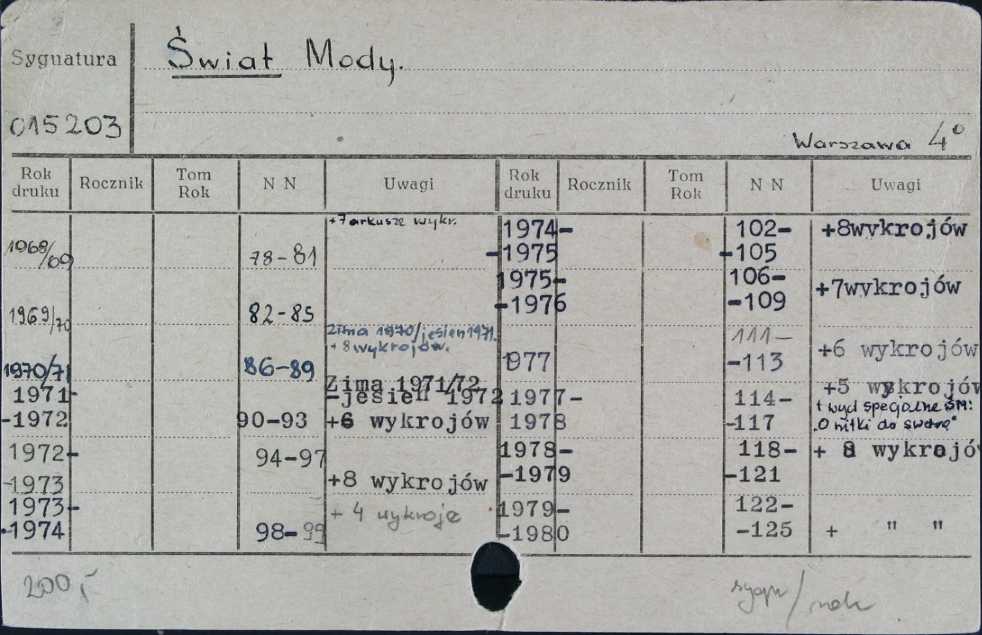 Sygnatura
Świat Mody.
015203
Warszawa 4°
Rok druku Rocznik Tom Rok N N Uwagi Rok druku Rocznik Tom Rok N N Uwagi
+7 arkusze wykr.
1968/69 78-81
1969/70 82-85
zima 1970/jesien 1971.
+8 wykrojów.
1970/71 86-89
Zima 1971/72
1971- -jesień 1972
-1972 90-93 +6 wykrojów
1972- 94-97
-1973 +8 wykrojów
1973- + 4 wykroje
-1974 98-99
1974- 102- +8wykrojów
-1975 -105
1975- 106- +7wykrojów
-1976 -109
111- +6 wykrojów
1977 -113
+5 wykrojów
1977- 114- + wyd specjalne ŚM:
1978 -117 "O nitki do swetra"
1978- 118- + 8 wykrojów
-1979 -121
1979- 122-
-1980 -125 + " "
200,-
sygn/rok